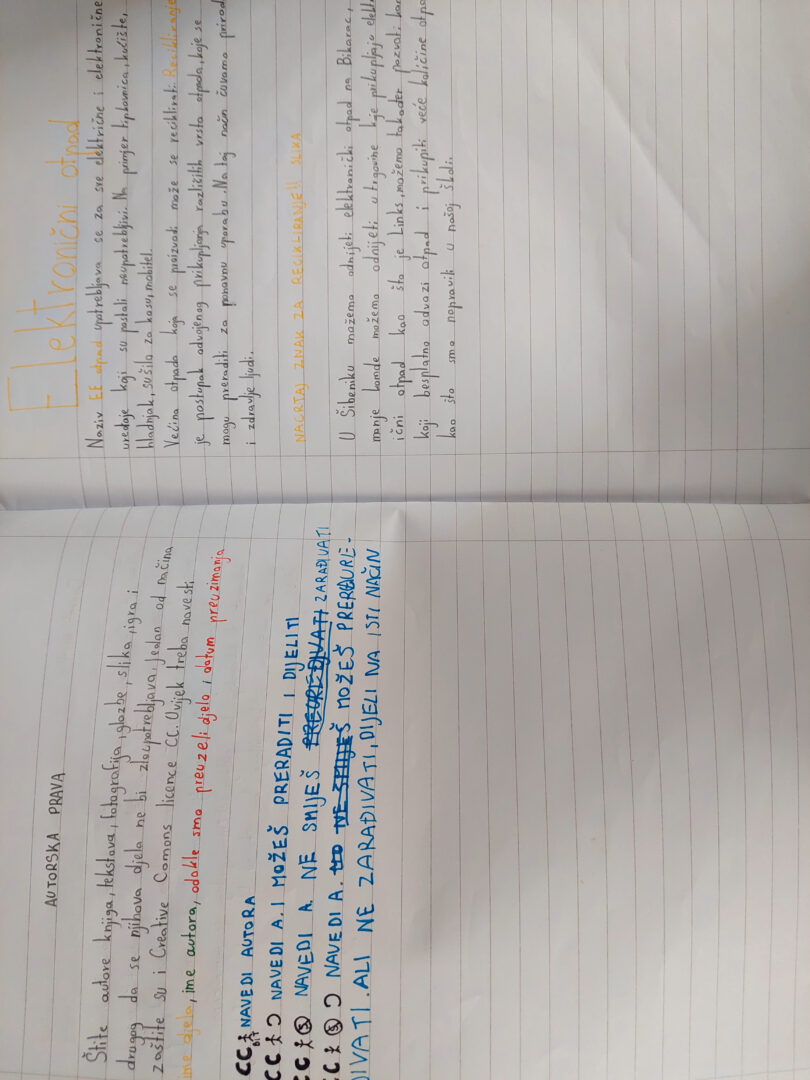 AUTORSKA PRAVA
Štite autore knjiga, tekstova, fotografija, glazbe, slika, igra i
drugog da se njihova djela ne bi zloupotrebljava, jedan od načina
zaštite su i Creative Comons licence CC. Uvijek treba navesti
ime djela, ime autora, odakle smo preuzeli djelo i datum preuzimanja
CC BY NAVEDI AUTORA
CC NAVEDI A. I MOŽEŠ PRERADITI I DIJELITI
CC $ NAVEDI A NE SMIJEŠ PREUREDJIVATI ZARAĐIVATI
CC $ NAVEDI A. NE SMIJEŠ MOŽEŠ PREUREĐ-
IVATI. ALI NE ZARAĐIVATI, DIJELI NA ISTI NAČIN
Elektronični otpad
Naziv EE otpad upotrebljava se za sve električne i elektronične
uređaje koji su postali neupotrebljivi. Na primjer tipkovnica, kućište,
hladnjak, sušilo za kosu, mobitel.
Većina otpada koja se proizvodi može se reciklirati. Recikliranje
je postupak odvojenog prikupljanja različitih vrsta otpada, koje se
mogu preraditi za ponovnu uporabu. Na taj način čuvamo prirod
i zdravlje ljudi.
NACRTAJ ZNAK ZA RECIKLIRANJE!! SLIKA
U Šibeniku možemo odnijeti elektronički otpad na Bikarac,
manje komde možemo odnijeti u trgovine koje prikupljaju elekt
ični otpad kao što je Links, možemo također pozvati
koji besplatno odvozi otpad i prikupiti veće količine otpa
kao što smo napravili u našoj školi.